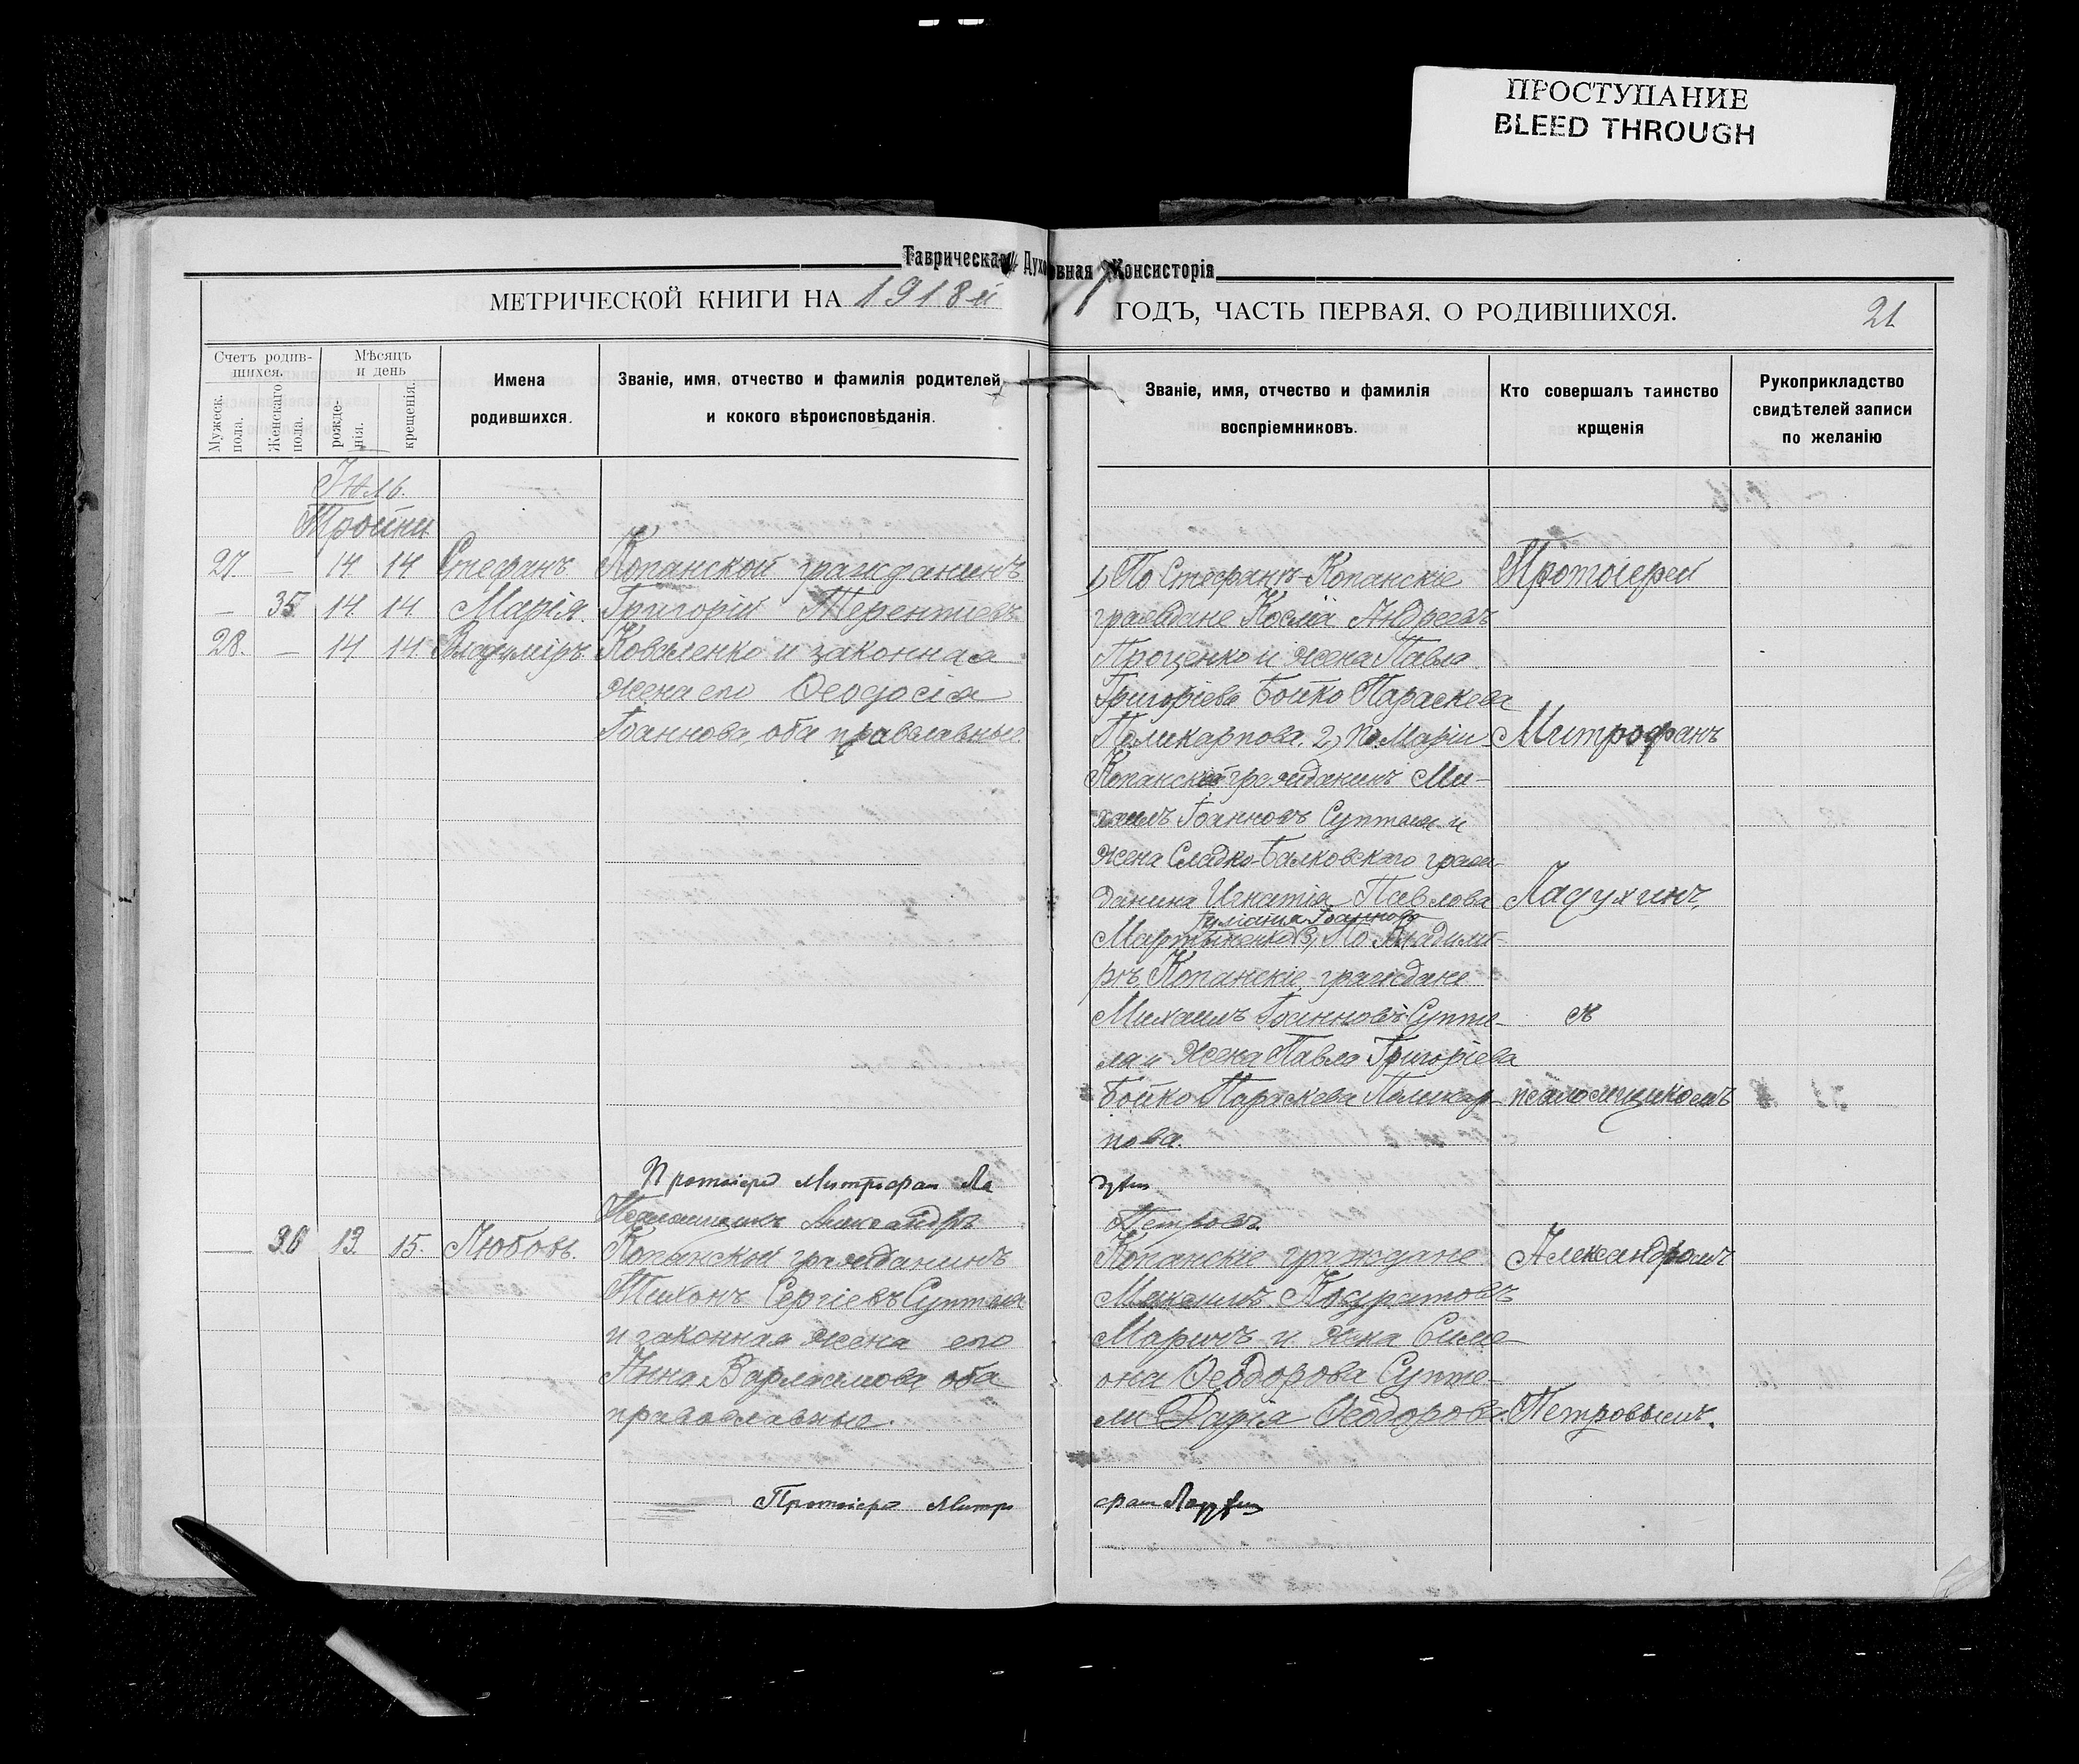 ПРОСТУПАНИЕ
BLEED THROUGH
Таврическая Духовная Консисторія
МЕТРИЧЕСКОЙ КНИГИ НА 1918й ГОДЪ, ЧАСТЬ ПЕРВАЯ, О РОДИВШИХСЯ.
21
Счетъ родив-
шихся.
Мужеск. пола.
Женскаго пола.
Мѣсяцъ
и день
рожде-
нія.
крещенія.
Имена
родившихся.
Званіе, имя, отчество и фамилія родителей,
и кокого вѣроисповѣданія.
Званіе, имя, отчество и фамилія
воспріемниковъ.
Кто совершалъ таинство
крщенія
Рукоприкладство
свидѣтелей записи
по желанію
Іюль.
Тройни
27. — 14 14 Стефанъ
— 35 14. 14. Марія.
28. — 14 14 Владиміръ
Копанской гражданинъ
Григорій Терентіевъ
Коваленко и законная
жена его Ѳеодосія
Іоаннова, оба православные.
1) По Стефанѣ-Копанскіе
граждане Косма Андреевъ
Проценко и жена Павла
Григоріева Бойко Параскева
Поликарпова. 2) По Маріи
Копанской гражданинъ Ми-
хаилъ Іоанновъ Суптеля и
жена Сладко-Балковскаго граж-
данина Игнатія Павлова
Іуліанія Іоаннова
Мартыненко 3) По Владимі-
рѣ, Копанскіе граждане
Михаилъ Іоанновъ Супте-
ля и жена Павла Григоріева
Бойко Параскева Поликар-
пова.
Протоіерей
Митрофанъ
Ладухинъ,
съ
псаломщикомъ
Протоіерей Митрофан Ла
духин
Псаломщикъ Александръ
Петровъ.
— 36 13. 15. Любовь.
Копанской гражданинъ
Тихонъ Сергіевъ Суптеля
и законная жена его
Анна Варлаамова оба
православные.
Копанскіе граждане
Максимъ Кодратовъ
Маричъ и жена Симе-
она Ѳеодорова Супте-
ли Дарія Ѳеодорова.
Александромъ
Петровымъ.
Протоіерей Митро
фан Ладухин